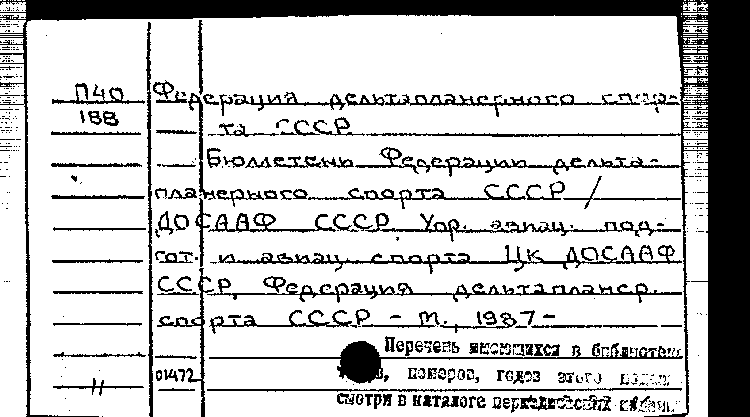 П40 Федерация дельтапланерного спор-
188 та СССР
Бюллетень Федерации дельта-
планерного спорта СССР /
ДОСААФ СССР, Упр. авиац. под-
гот. и авиац. спорта ЦК ДОСААФ
СССР, Федерация дельтапланер.
спорта СССР - М., 1987-
Перечень имеющихся в библиотеке
01472 номеров, годов этого
11 смотри в каталоге периодических изданий